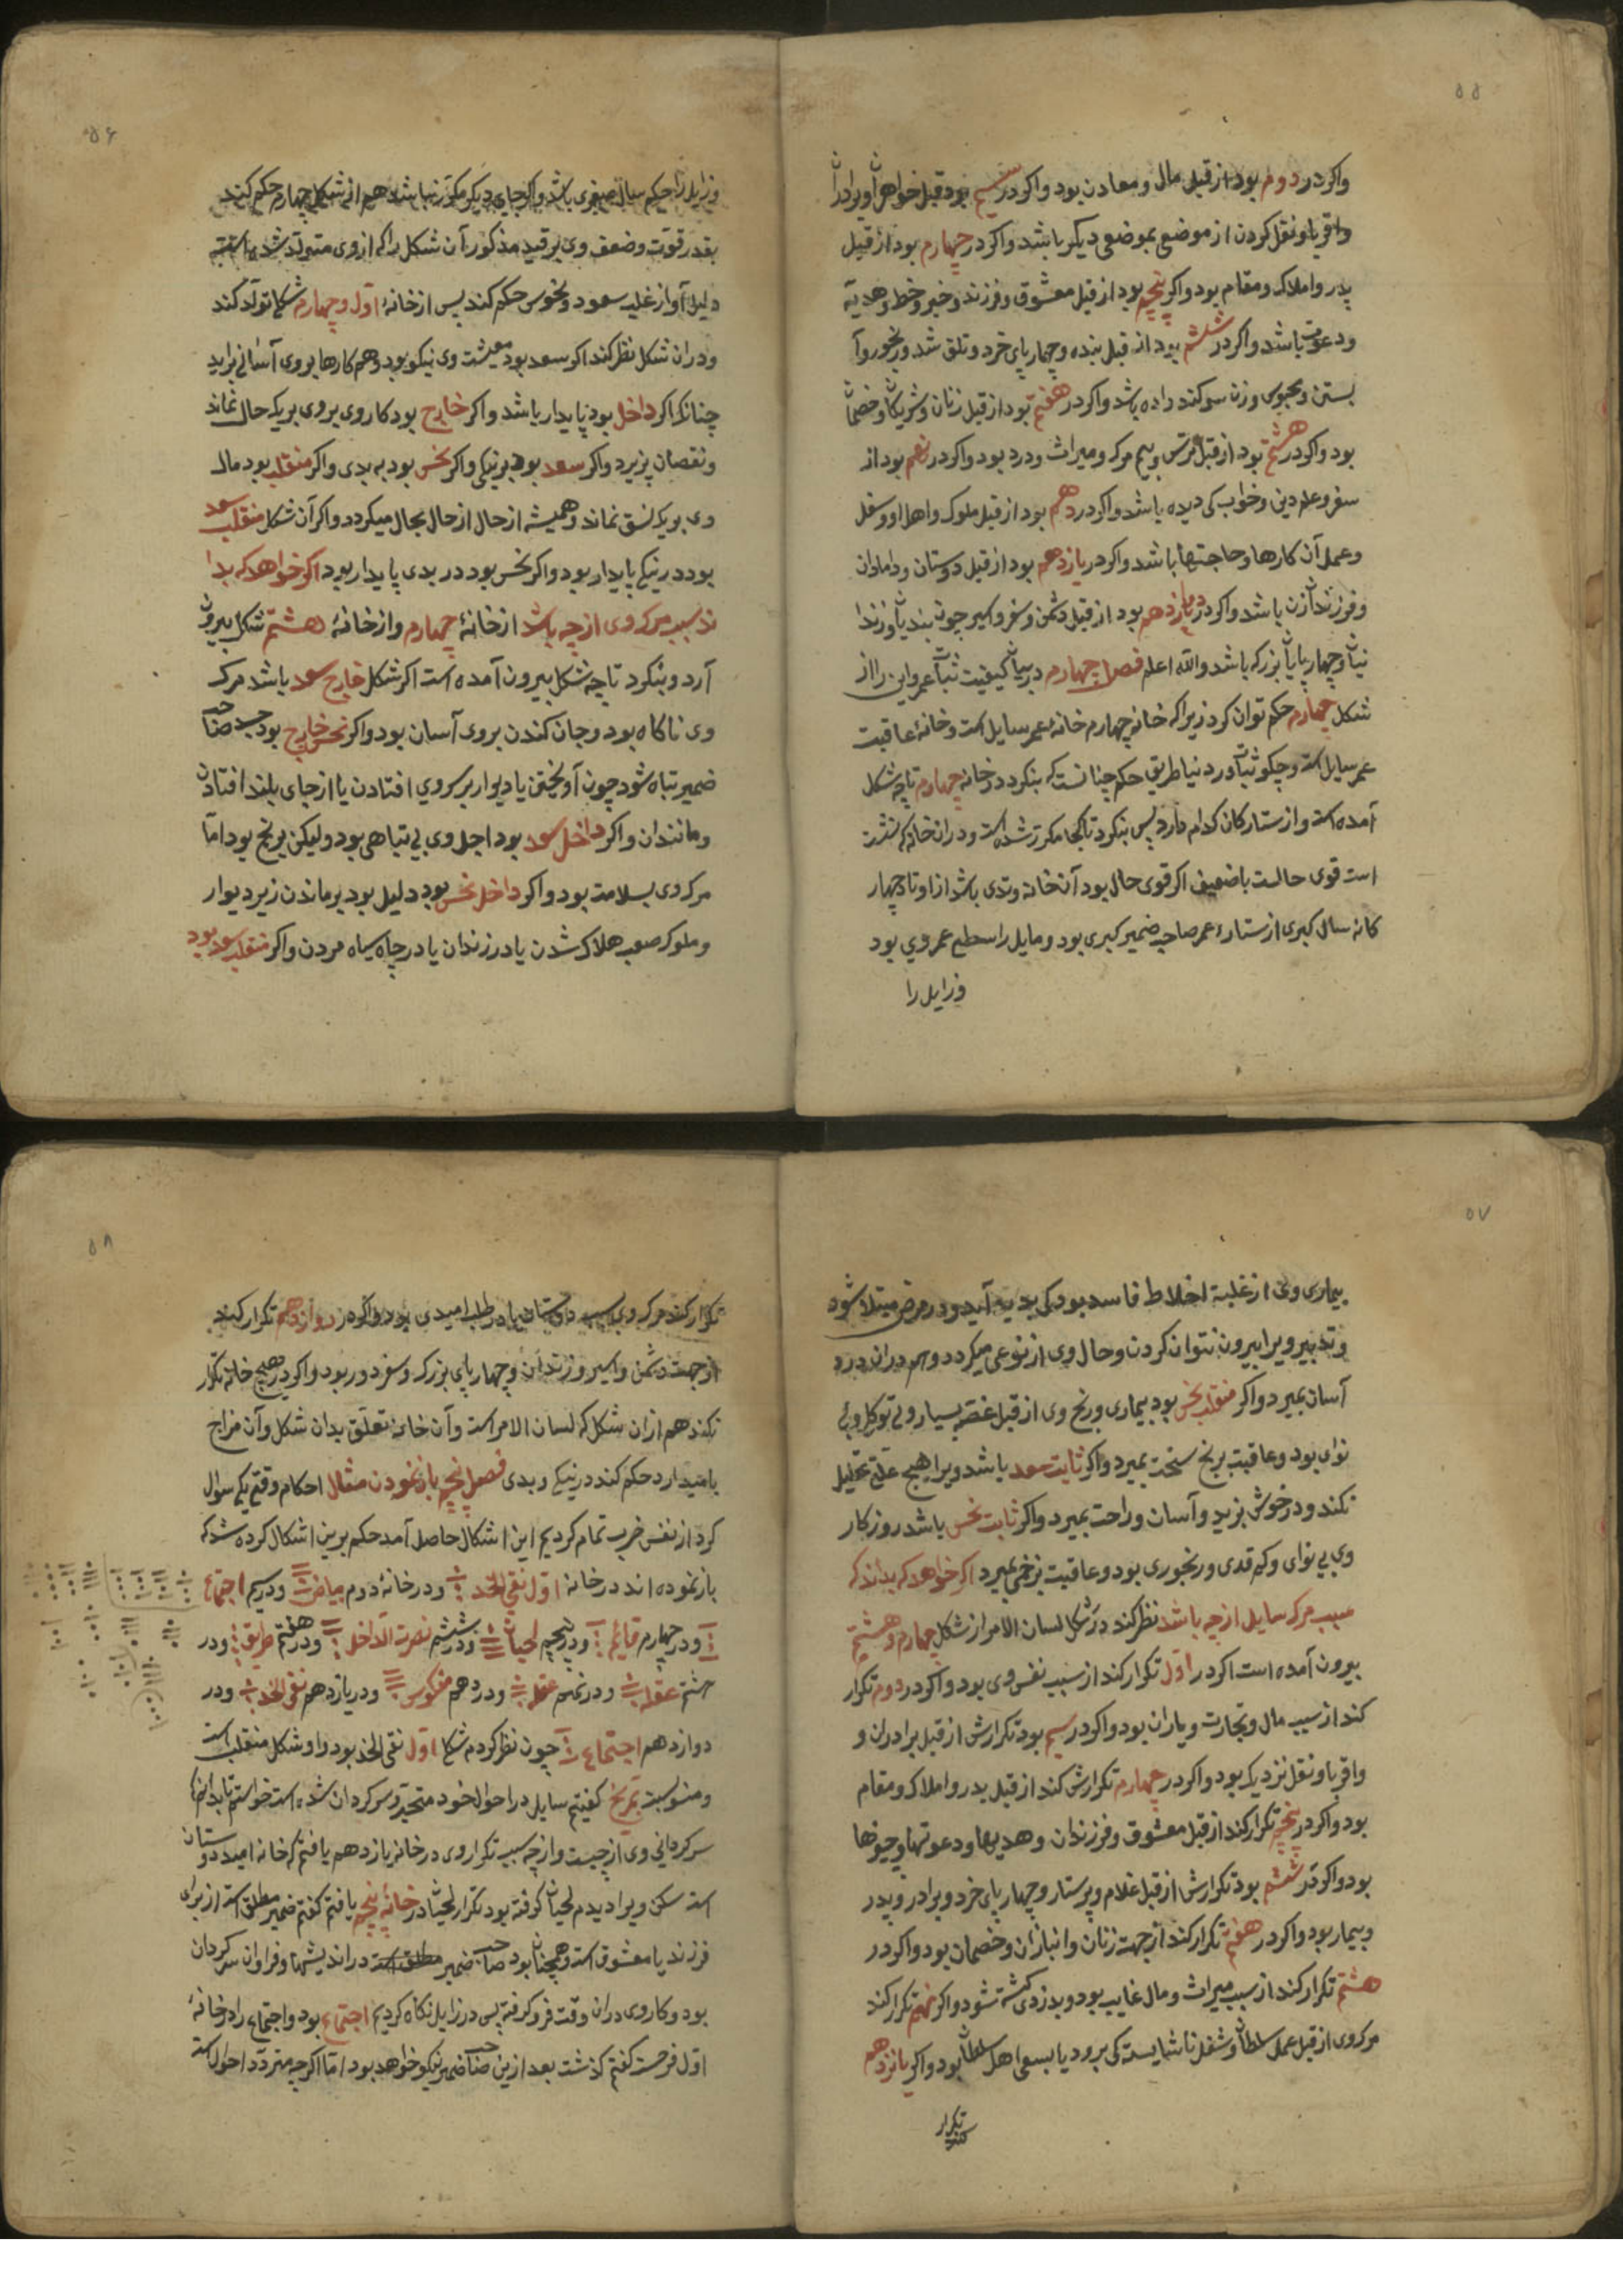 ۵۵
واکر در دوم بود از قبل مال و معادن بود واکر در سیم بود قبل خواهران و برادران
واقربا و نقل کردن از موضع بموضعی دیکر باشد واکر در چهارم بود از قبل
پدر و املاک و مقام بود واکر پنجم بود از قبل معشوق و فرزند و خبر و خط و هدیه
ودعوت باشد واکر در ششم بود از قبل بنده و چهارپای خرد و
بستن و محبوس وزن سوکند داده باشد واکر در هفتم بود از قبل زنان و شریکان و خصمان
بود واکر در هشتم بود از قبل ترس و بیم مرک و میراث و درد بود واکر در نهم بود از
سفر و علم دین و خواب کی دیده باشد واکر در دهم بود از قبل ملوک و اهل او و شغل
وعمل آن کارها و حاجتها باشد واکر در یازدهم بود از قبل دوستان و دامادان
وفرزندان زن باشد واکر در دوازدهم بود از قبل دشمن و سفر و اسیر چون بندیان و زندا
نیان و چهارپایان بزرک باشد والله اعلم فصل چهارم در بیان کیفیت ثبات عمر و این را از
شکل چهارم حکم توان کرد زیرا که خانه چهارم خانه عمر سایل است و خانه عاقبت
عمر سایل است و چکونه ثبات در دنیا طریق حکم چنانست که بنکرد در خانه چهارم تا چه شکل
آمده است و از ستارکان کدام دارد پس بنکرد تا کجا مکرر شده است و در ان خانه که
است قوی حالست یا ضعیف اکر قوی حال بود آن خانه وتدی باشد از اوتاد چهار
کانه سال کبری از ستاره عمر صاحب ضمیر کبری بود و مایل را وسطی عمر وی بود
وزایل را
۵۶
وزایل را حکم سال صغری باشد واکر جای دیکر مکرر نباشد هم از شکل چهارم حکم کند
بقدر قوت و ضعف وی بر قید مذکور آن شکل را که از وی متولد شده است
دلیل آواز غلبه سعود و نحوس حکم کند پس از خانه اول و چهارم شکل تولد کند
ودران شکل نظر کند اکر سعد بود معیشت وی نیکو بود و هم کارها بروی آسان براید
چنانک اکر داخل بود پایدار باشد واکر خارج بود کار وی بروی بر یک حال نماند
ونقصان پزیرد واکر سعد بود بر نیکی واکر نحس بود به بدی واکر منقلب بود مال
وی بریک نسق نماند و همیشه از حال از حال بحال میکردد واکر آن شکل منقلب سعد
بود در نیکی پایدار بود واکر نحس بود در بدی پایدار بود اکر خواهد که بدا
ند سبب مرک وی از چه باشد از خانه چهارم و از خانه هشتم شکل بیرون
آرد و بنکرد تا چه شکل بیرون آمده است اکر شکل خارج سعد باشد مرک
وی ناکاه بود و جان کندن بروی آسان بود واکر نحس خارج بود صاحب
ضمیر تباه شود چون آویختن یا دیوار بر سر وی افتادن یا از جای بلند افتادن
ومانندان واکر داخل سعد بود اجل وی بی تباهی بود ولیکن برنج بود اما
مرک وی بسلامت بود واکر داخل نحس بود دلیل بود بر ماندن زیر دیوار
وملوک صعب هلاک شدن یا در زندان یا در چاه سیاه مردن واکر منقلب سعد بود
۵۷
بیماری وی از غلبه اخلاط فاسد بود کی پدید آید و در مرض مبتلا شود
وتدبیر ویرا بیرون نتوان کردن و حال وی از نوعی میکردد و هم دران درد
آسان بمیرد واکر منقلب نحس بود بیماری و رنج وی از قبل غصه بسیار و بی توکلی وبی
نوای بود و عاقبت برنج سخت بمیرد واکر ثابت سعد باشد ویرا هیچ علتی تحلیل
نکند و در خوشی بزید و آسان و راحت بمیرد واکر ثابت نحس باشد روزکار
وی بی نوای و کم قدری و رنجوری بود و عاقبت بزخمی بمیرد اکر خواهد که بداند که
سبب مرک سایل از چه باشد نظر کند در شکل لسان الامر از شکل چهارم و هشتم
بیرون آمده است اکر در اول تکرار کند از سبب نفس وی بود واکر در دوم تکرار
کند از سبب مال و تجارت و یاران بود واکر در سیم بود تکرارش از قبل برادران و
واقربا و نقل نزدیک بود واکر در چهارم تکرارش کند از قبل پدر و املاک و مقام
بود واکر در پنجم تکرار کند از قبل معشوق و فرزندان و هدیها و دعوتها و
بود واکر در ششم بود تکرارش از قبل غلام و پرستار و چهارپای خرد و برادر و پدر
وبیمار بود واکر در هفتم تکرار کند از جهت زنان و انبازان و خصمان بود واکر در
هشتم تکرار کند از سبب میراث و مال غایب بود و بدزدی کشته شود واکر نهم تکرار کند
مرک وی از قبل عمل سلطان و شغل ناشایسته کی برود یا بسعی اهل سلطان بود واکر یانزدهم
تکرار
کند
۵۸
تکرار کند مرک وی بسبب دوستان یا در طلب امیدی بود واکر در دوازدهم تکرار کند
از جهت دشمن و اسیر و زندان و چهارپای بزرک و سفر دور بود واکر در هیچ خانه تکرار
نکند هم ازان شکل که لسان الامر است و آن خانه تعلق بدان شکل و آن مزاج
بامید دارد حکم کند در نیکی و بدی فصل پنجم باز نمودن مثال احکام وقتی یکی سوال
کرد از نفس ضرب تمام کردیم این اشکال حاصل آمد حکم برین اشکال کرده شد که
باز نموده اند در خانه اول نقی الخد و در خانه دوم بیاض و در سیم اجتماع
ودر چهارم قایم ودر پنجم لحیان ودر ششم نصرت الداخل ودر هفتم طریق ودر
هشتم عقله ودر نهم عقله ودر دهم منکوس ودر یازدهم نقی الخد ودر
دوازدهم اجتماع چون نظر کردم شکل اول نقی الخد بود و او شکل منقلب است
ومنسوبست بمریخ کفتیم سایل در احوال خود متحیر و سرکردان شده است خواستم تا بدانم
سرکردانی وی از چیست و از چه سبب تکرار وی در خانه یازدهم یافتم که خانه امید و دوستان
است سکن ویرا دیدم لحیان کرفته بود تکرار لحیان در خانه پنجم یافتم کفتم ضمیر مطلق است از برای
فرزند یا معشوق است و همچنان بود صاحب ضمیر مطلق است در اندیشها و فراوان سرکردان
بود و کار وی دران وقت فرو کرفته پس در زایل نکاه کردیم اجتماع بود و اجتماع را در خانه
اول فرحست کفتم کذشت بعد ازین صاحب ضمیر نیکو خواهد بود اما اکرچه متردد احوال است